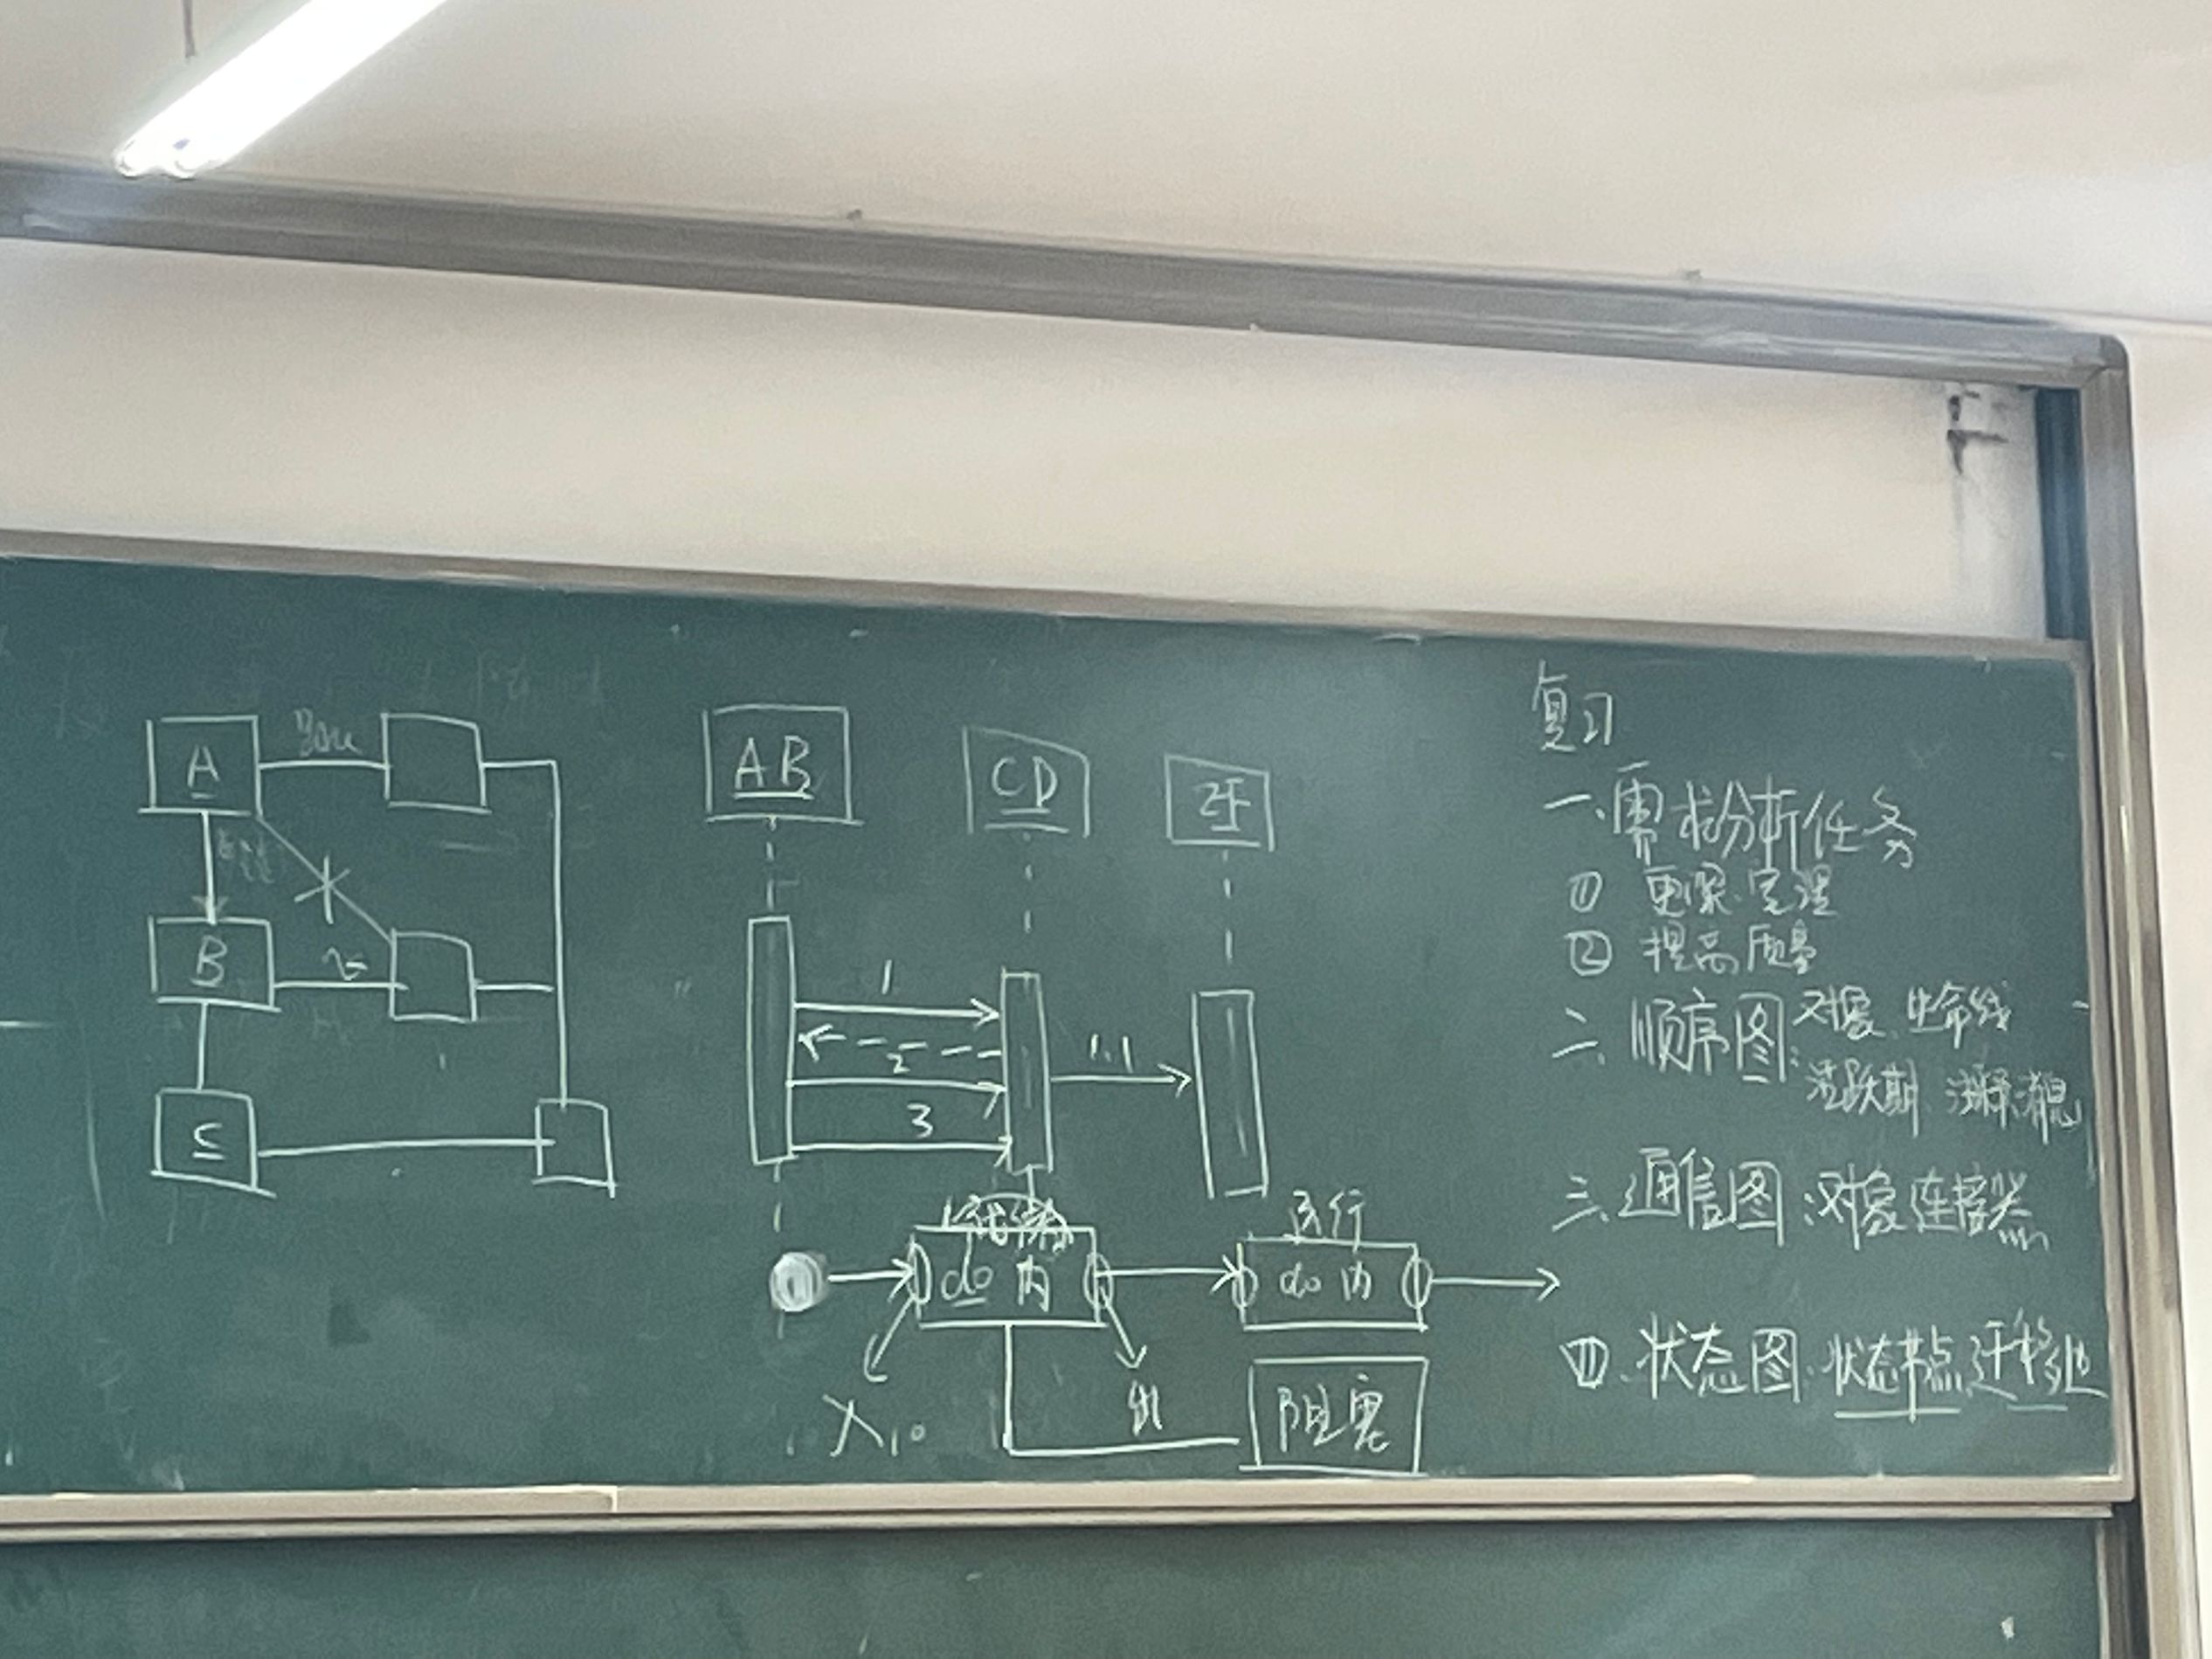 A
B
AB
CD
1
2
3
1.1
do 内
运行
do 内
入
出
阻塞
复习
一、需求分析任务
① 更深.完
② 提高质量
二、顺序图: 对象、生命线
活跃期、消息
三、通信图:对象连接器
四、状态图:状态节点迁移边